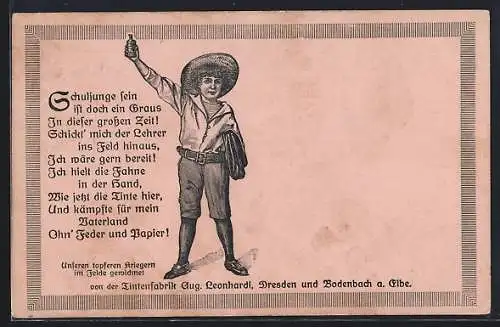 Schuljunge sein
ist doch ein Graus
In dieser großen Zeit!
Schickt' mich der Lehrer
ins Feld hinaus,
Ich wäre gern bereit!
Ich hielt die Fahne
in der Hand,
Wie jetzt die Tinte hier,
Und kämpfte für mein
Vaterland
Ohn' Feder und Papier!
Unseren tapferen Kriegern
im Felde gewidmet
von der Tintenfabrik Aug. Leonhardi, Dresden und Bodenbach a. Elbe.